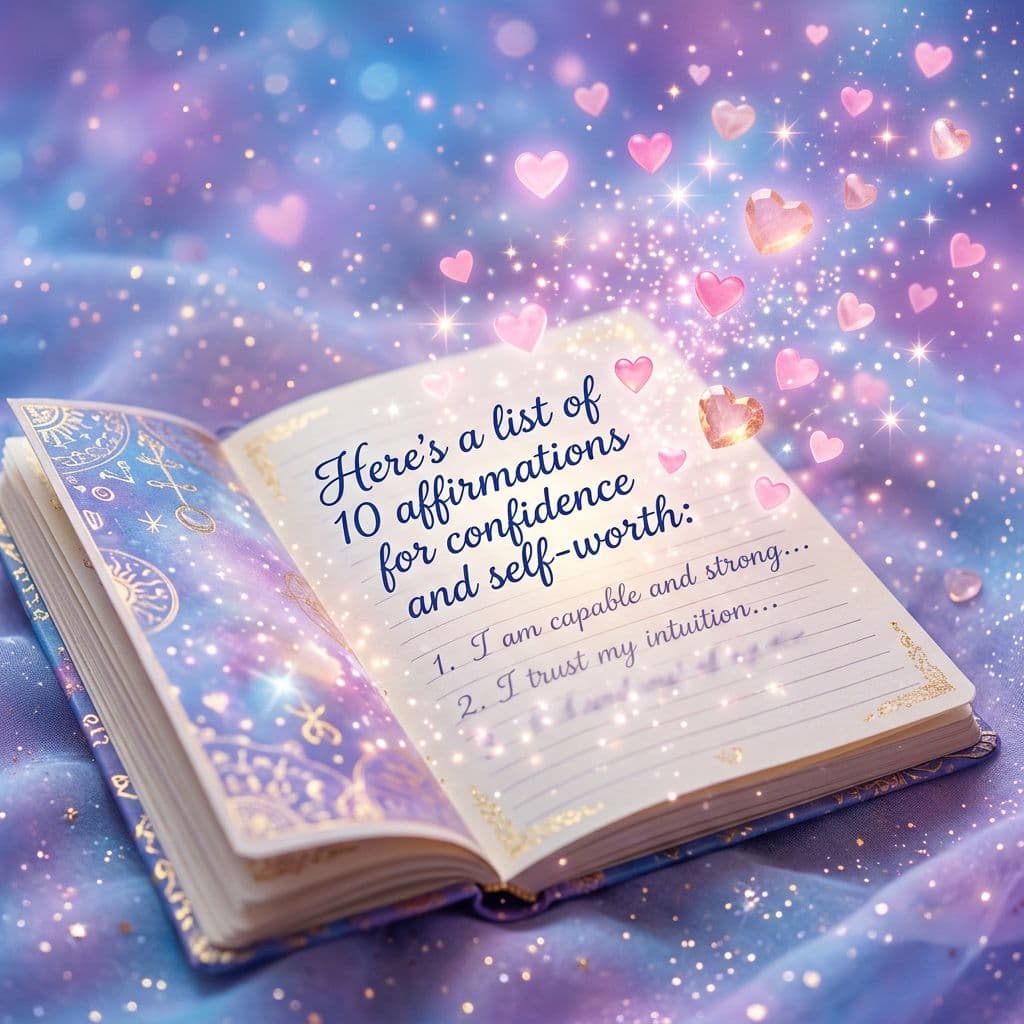 Here's a list of
10 affirmations
for confidence
and self-worth:
1. I am capable and strong...
2. I trust my intuition...